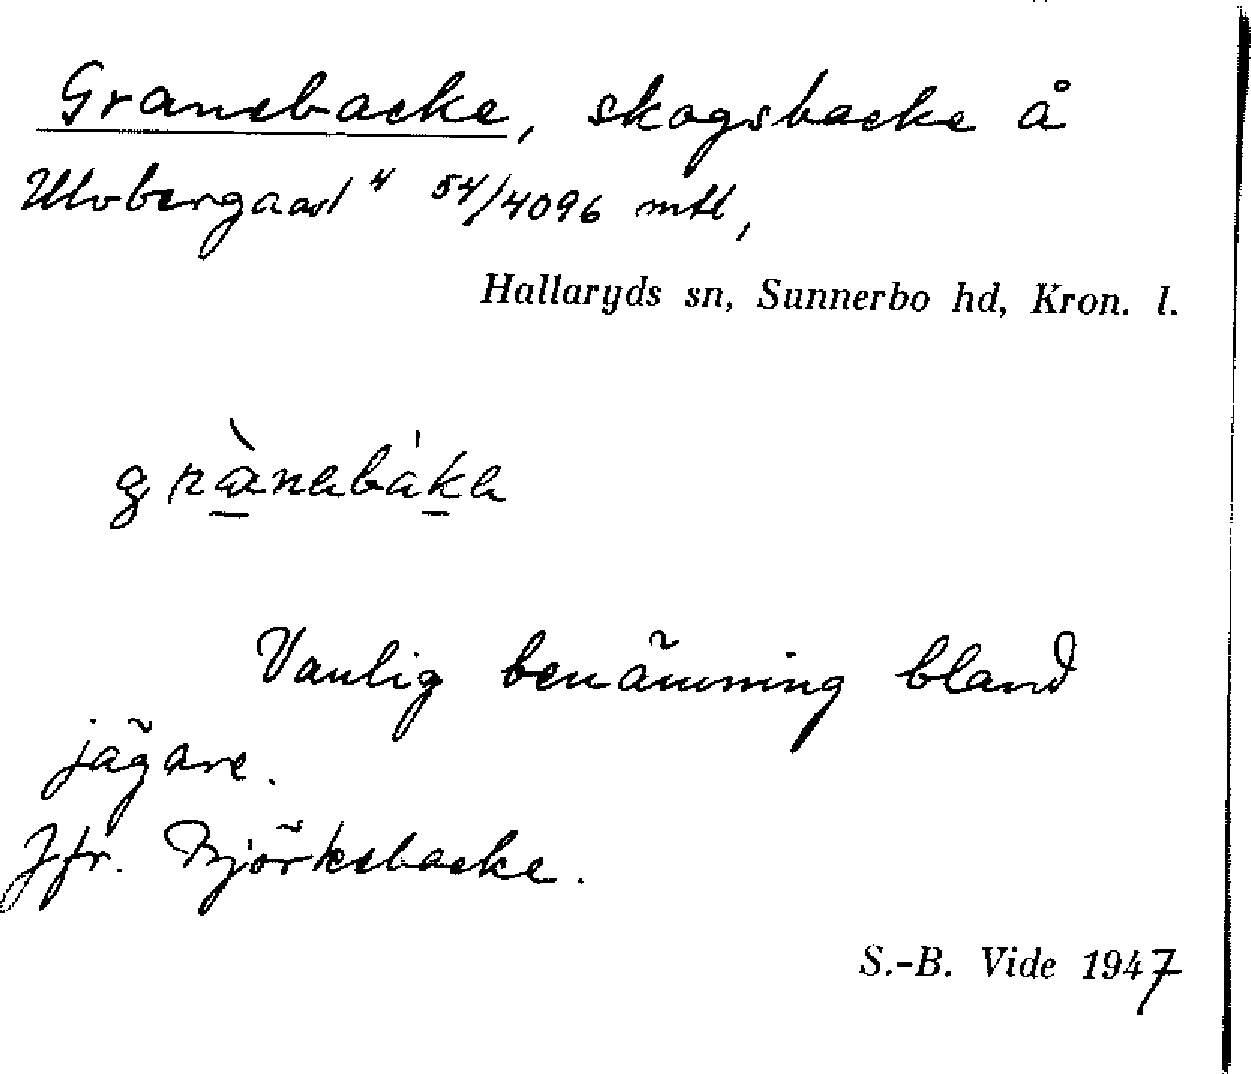 Granebacke, skogsbacke å
Ulvbergaas 4 54/4096 mtl,
Hallaryds sn, Sunnerbo hd, Kron. l.
grànabáka
Vanlig benämning bland
jägare.
Jfr. Björkebacke.
S.-B. Vide 1947